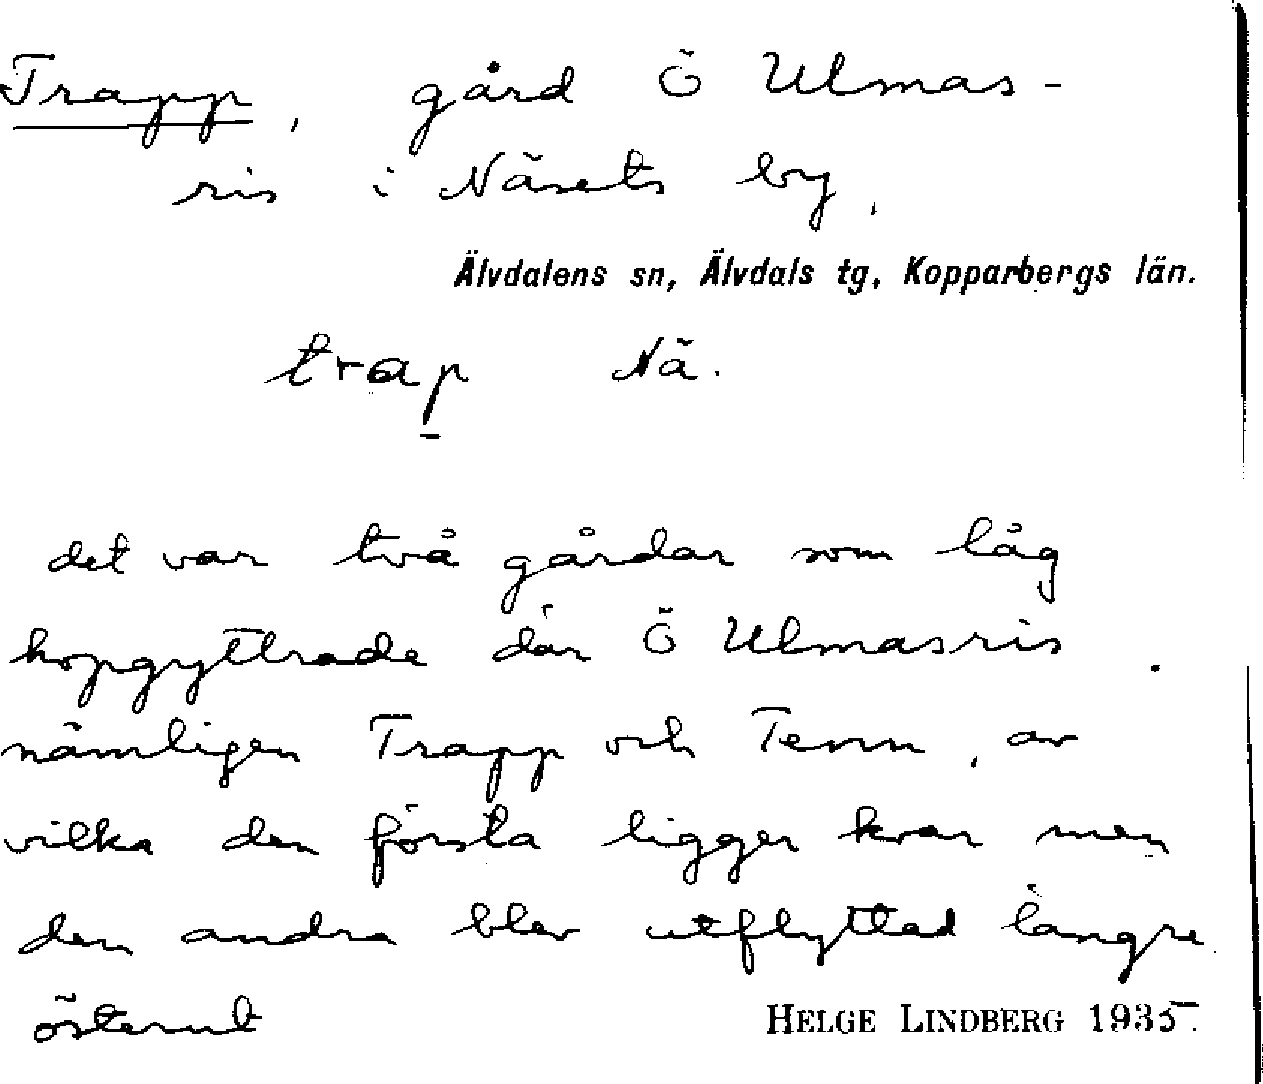 Trapp, gård Ö Ulmas-
ris i Näsets by,
Älvdalens sn, Älvdals tg, Kopparbergs län.
trap Nä.
det var två gårdar som låg
hopgyttrade där Ö Ulmasris
nämligen Trapp och Tenn, av
vilka den första ligger kvar men
den andra blev utflyttad längre
österut
HELGE LINDBERG 1935.